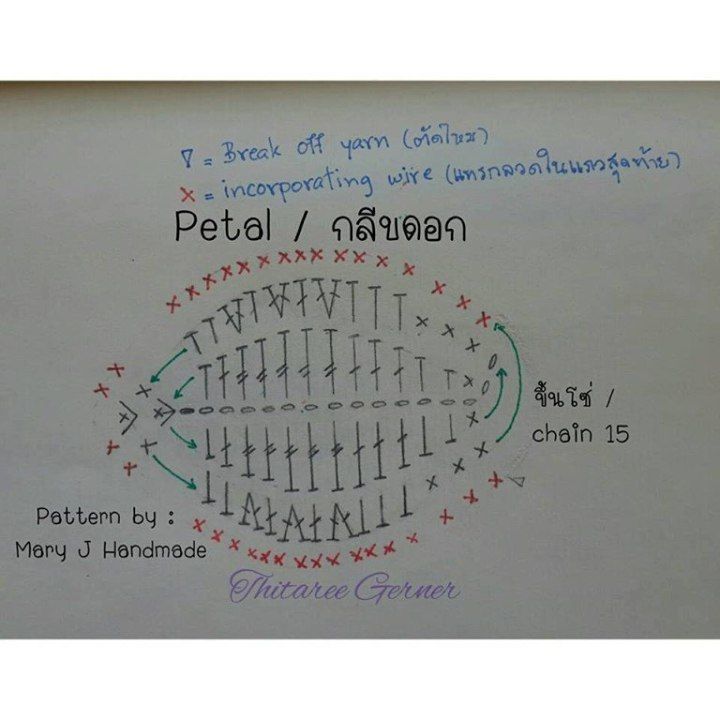 ∇ = Break off yarn (ตัดไหม)
x = incorporating wire (แทรกลวดในแถวสุดท้าย)
Petal / กลีบดอก
ขึ้นโซ่ /
chain 15
Pattern by :
Mary J Handmade
Thitaree Gerner